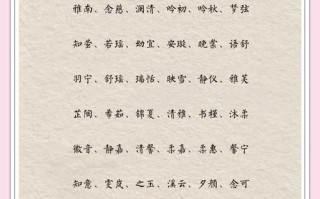 雅南、念慈、澜清、吟初、吟秋、梦弦
知莹、若瑶、幼宜、安璇、晚棠、语舒
羽宁、舒瑶、瑞恬、映雪、静仪、雅芙
芷陶、希茹、锦夏、清雅、书槿、沐柔
徽音、静嘉、清馨、柔嘉、柔惠、馨宁
知意、雯岚、之玉、溪云、夕颜、念可